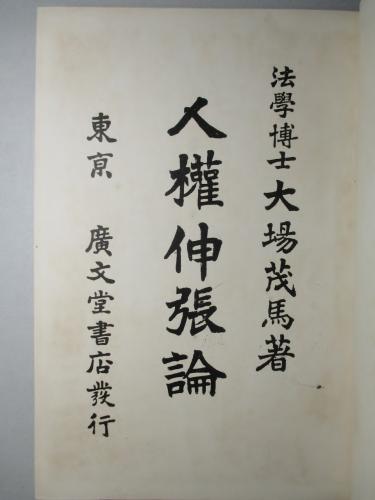 法學博士大場茂馬著
人權伸張論
東亰 廣文堂書店發行